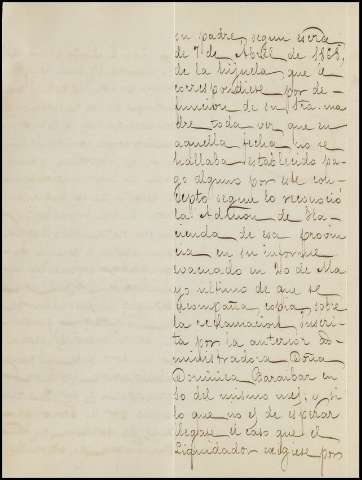 su padre, segun escra
de 7 de Abril de 1868,
de la hijuela que le
correspondiese por de-
funcion de su Sra. ma-
dre toda vez que en
aquella fecha no se
hallaba establecido pa-
go alguno por este con-
cepto segun lo reconoció
la Admon de Ha-
cienda de esa provin-
cia en su informe
evacuado en 20 de Ma-
yo ultimo de que se
acompaña copia, sobre
la reclamacion suscri-
ta por la anterior Ad-
ministradora Doña
Dominica Baraibar en
10 del mismo mes, y si
lo que no es de esperar
llegase el caso que el
Liquidador exigiese por